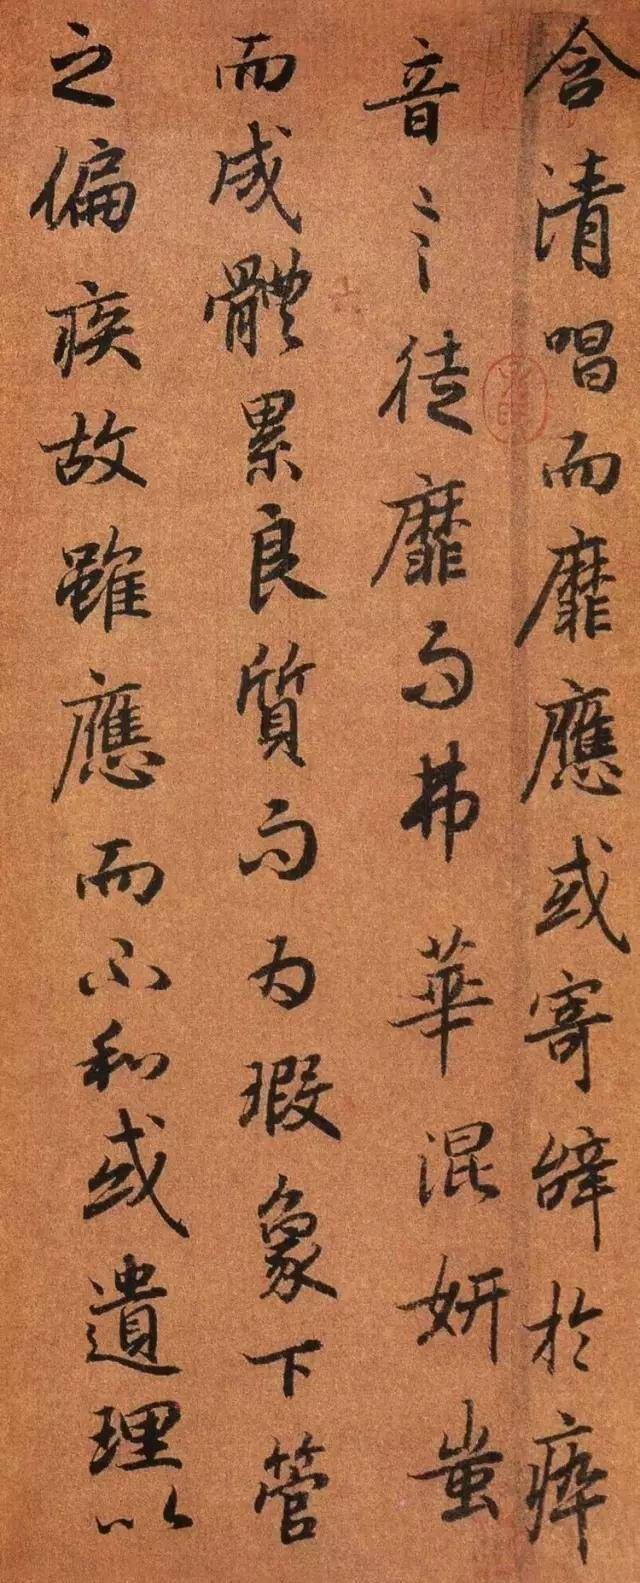 含清唱而靡應或寄辤於瘁
音之徒靡而弗華混妍蚩
而成體累良質而為瑕象下管
之偏疾故雖應而不和或遺理以